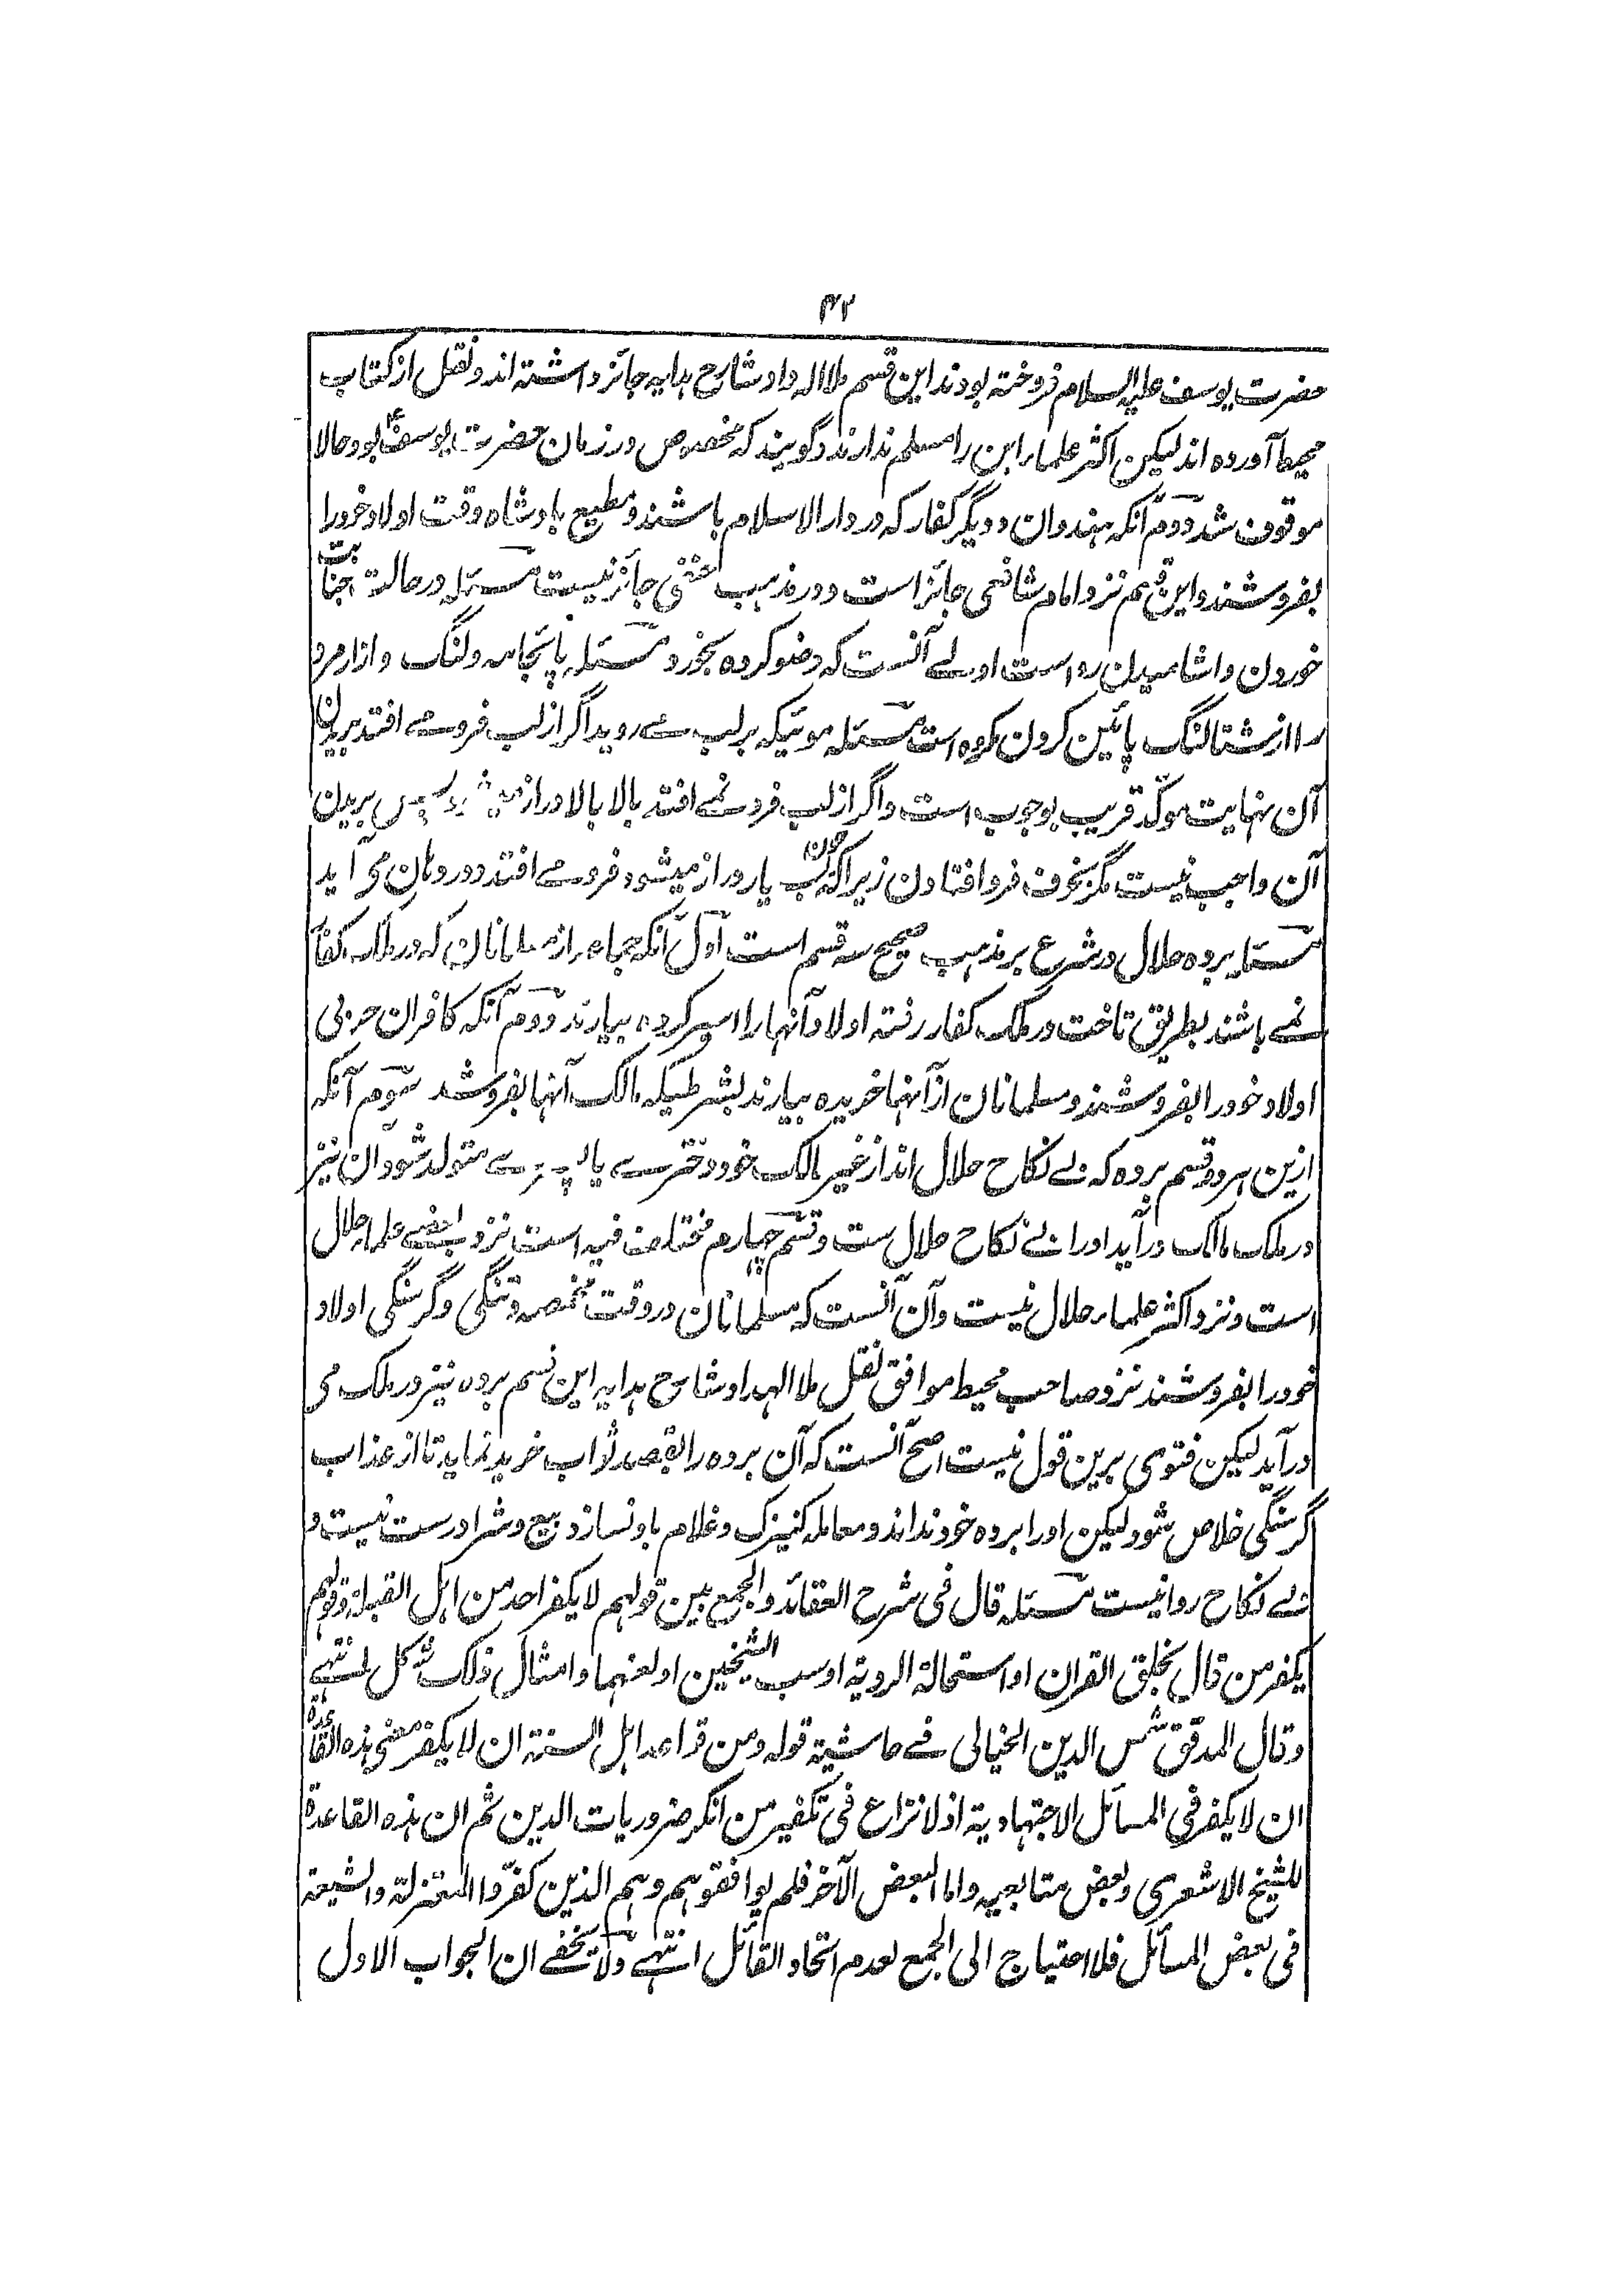 ۴۲
حضرت یوسف علیہ السلام فروختہ بودند این قسم ملا الہ داد شارح ہدایہ جائز داشتہ اند و نقل از کتاب
محیط آوردہ اند لیکن اکثر علماء این را مسلم ندارند و گویند کہ مخصوص در زمان حضرت یوسفؑ بود حالا
موقوف شد دوم آنکہ ہندوان و دیگر کفار کہ در دار الاسلام باشند و مطیع بادشاہ وقت اولاد خود را
بفروشند و این ہم نزد امام شافعی جائز است و در مذہب حنفی جائز نیست مسئلہ در حالت جنابت
خوردن و اشامیدن رواست اولے آنست کہ وضو کردہ بخورد مسئلہ پائجامہ و لنگ و ازار مرد
را از شتالنگ پائین کردن مکروہ است مسئلہ موئیکہ بر لب مے روید اگر از لب فرو مے افتد بریدن
آن نہایت موکد قریب بوجوب است و اگر از لب فرو نمے افتد بالا بالا دراز بریدن
آن واجب نیست مگر بخوف فرو افتادن زیرا کہ چون لب یار دراز میشود فرو مے افتد و در دہان می آید
مسئلہ بردہ حلال در شرع بر مذہب صحیح سہ قسم است اول آنکہ جماعہ از مسلمانان کہ در ملک کفار
نمے باشند بطریق تاخت در ملک کفار رفتہ اولاد آنہا را اسیر کردہ بیارند دوم آنکہ کافران حربی
اولاد خود را بفروشند و مسلمانان از آنہا خریدہ بیارند بشرطیکہ مالک آنہا بفروشد سوم آنکہ
ازین ہر دو قسم بردہ کہ بے نکاح حلال اند از غیر مالک خود دخترے یا پسرے متولد شود آن نیز
در ملک مالک در آید او را بے نکاح حلال ست و قسم چہارم مختلف فیہ است نزد بعضے علما حلال
است و نزد اکثر علماء حلال نیست و آن آنست کہ مسلمانان در وقت مخمصہ و تنگی و گرسنگی اولاد
خود را بفروشند نزد صاحب محیط موافق نقل ملا الہداد شارح ہدایہ این قسم بردہ نیز در ملک می
در آید لیکن فتوی برین قول نیست اصح آنست کہ آن بردہ را بقصد ثواب خرید نماید تا از عذاب
گرسنگی خلاص شود لیکن او را بردہ خود نداند و معاملہ کنیزک و غلام باو نسازد و بیع و شرا درست نیست و
بے نکاح روا نیست مسئلہ قال فی شرح العقائد و الجمع بین قولہم لا یکفر احد من اہل القبلۃ و قولہم
یکفر من قال بخلق القران او استحالۃ الرویۃ او سب الشیخین او لعنہما و امثال ذلک مشکل انتہے
و قال المدقق شمس الدین الخیالی فے حاشیتہ قولہ و من قواعد اہل السنۃ ان لا یکفر معنی ہذہ القاعدۃ
ان لا یکفر فی المسائل الاجتہادیۃ اذ لا نزاع فی تکفیر من انکر ضروریات الدین ثم ان ہذہ القاعدۃ
للشیخ الاشعری و بعض متابعیہ و اما البعض الآخر فلم یوافقوہم و ہم الذین کفروا المعتزلۃ و الشیعۃ
فی بعض المسائل فلا احتیاج الی الجمع لعدم اتحاد القائل انتہے و لا یخفے ان الجواب الاول